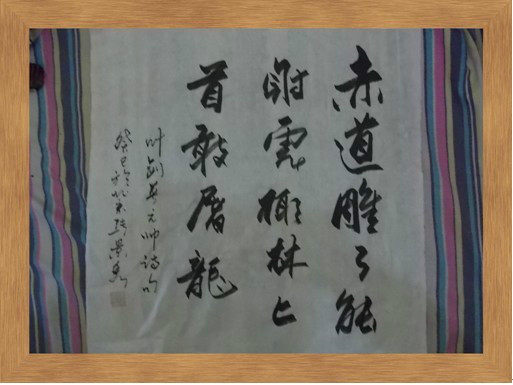 赤道雕弓能
射虎椰林匕
首敢屠龍
叶劍英元帅诗句
癸巳於北京